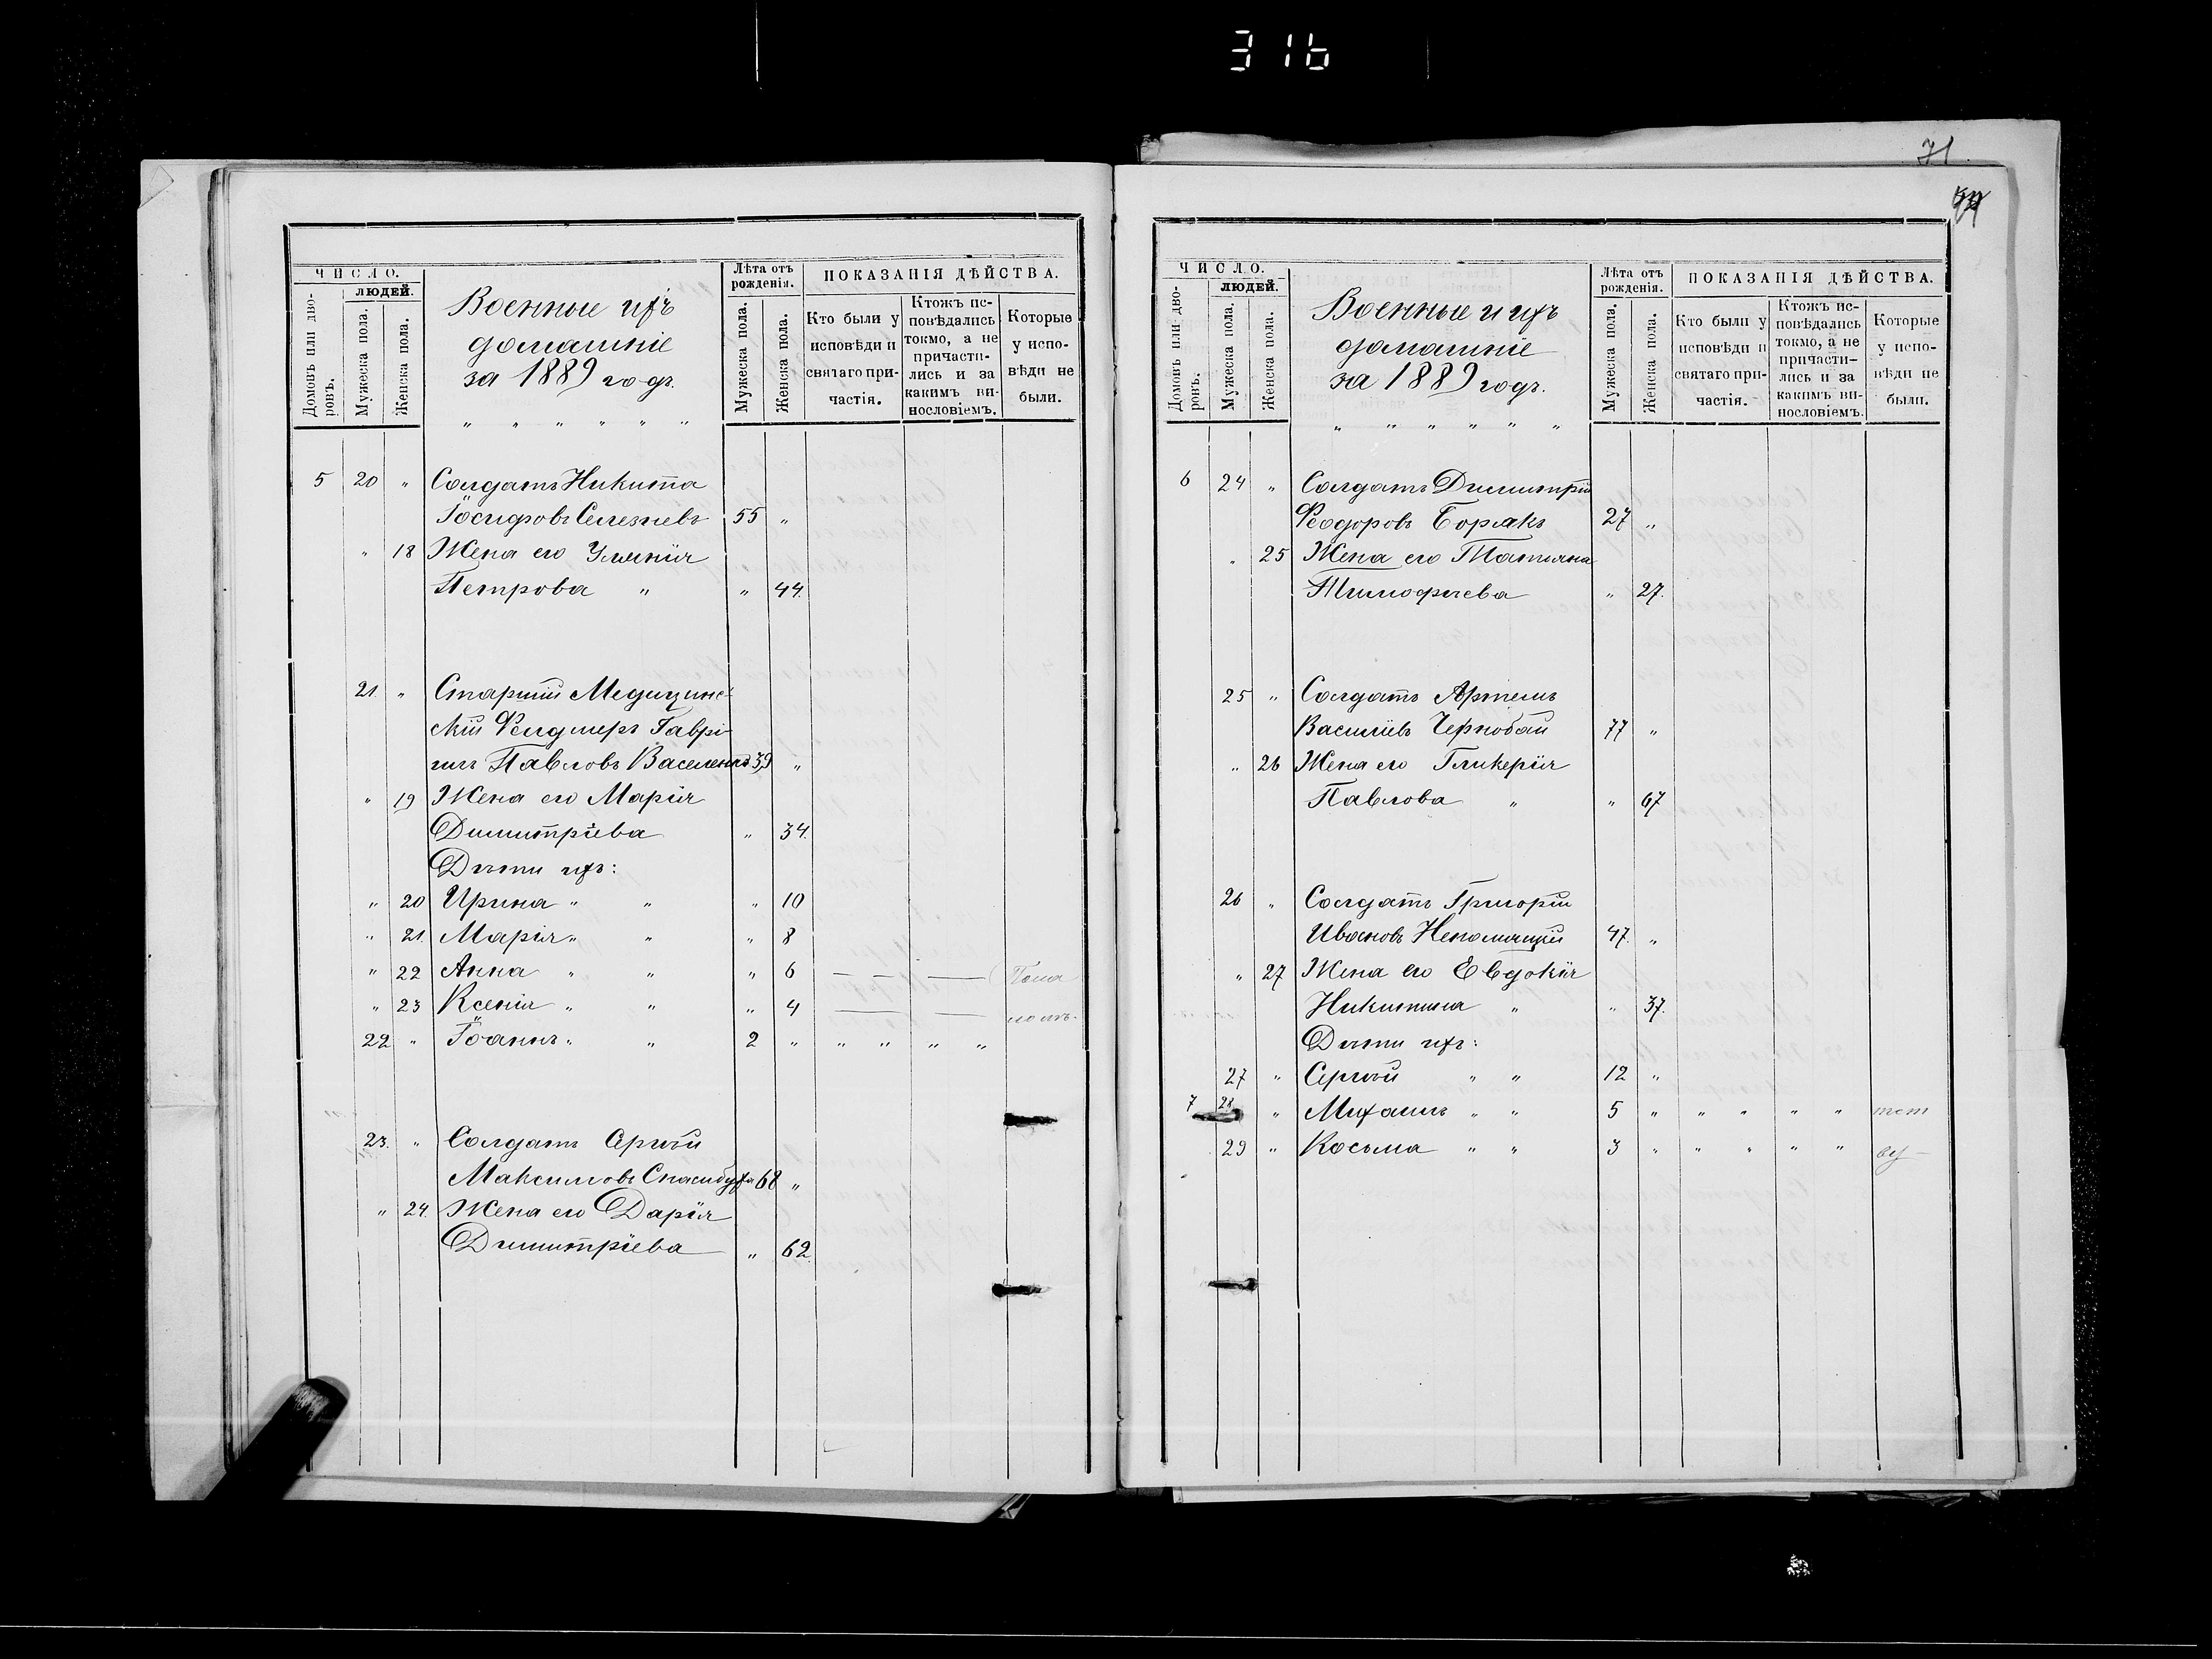 316
71
ЧИСЛО.
ЛЮДЕЙ.
Домовъ или дворовъ.
Мужеска пола.
Женска пола.
Военные ихъ
домашніе
за 1889 годъ.
Лѣта отъ рожденія.
Мужеска пола.
Женска пола.
ПОКАЗАНІЯ ДѢЙСТВА.
Кто были у исповѣди и святаго причастія.
Ктожъ исповѣдались токмо, а не причастились и за какимъ винословіемъ.
Которые у исповѣди не были.
" " " " " "
5 20 " Солдатъ Никита
Іосифовъ Селезневъ 55 "
" 18 Жена его Уліянія
Петрова " " 44.
21 " Старшій Медицин-
скій Фелдшеръ Гаврі-
илъ Павловъ Василенко 39 "
" 19 Жена его Марія
Димитріева " 34.
Дѣти ихъ:
" 20 Ирина " " " 10
" 21. Марія " " " 8
" 22 Анна " " " 6 — — —
" 23 Ксенія " " " 4 — —
22 " Іоаннъ " " 2 " " " " "
23. " Солдатъ Сергѣй
Максимовъ Спасибуха 68 "
" 24. Жена его Дарія
Димитріева " 62.
ЧИСЛО.
ЛЮДЕЙ.
Домовъ или дворовъ.
Мужеска пола.
Женска пола.
Военные и ихъ
домашніе
за 1889 годъ.
Лѣта отъ рожденія.
Мужеска пола.
Женска пола.
ПОКАЗАНІЯ ДѢЙСТВА.
Кто были у исповѣди и святаго причастія.
Ктожъ исповѣдались токмо, а не причастились и за какимъ винословіемъ.
Которые у исповѣди не были.
" " " " " "
6 24 " Солдатъ Димитрій
Феодоровъ Борякъ 27 "
" 25 Жена его Татіяна
Тимофѣева " 27.
25 " Солдатъ Артемъ
Василіевъ Чернобай 77 "
" 26 Жена его Гликерія
Павлова " " 67
26 " Солдатъ Григорій
Ивановъ Непомящій 47. "
" 27 Жена его Евдокія
Никитина " " 37.
Дѣти ихъ:
27 " Сергѣй " " 12 "
7 28 " Михаилъ " " 5 " " " " "
29 " Косьма " " 3 " " " " "